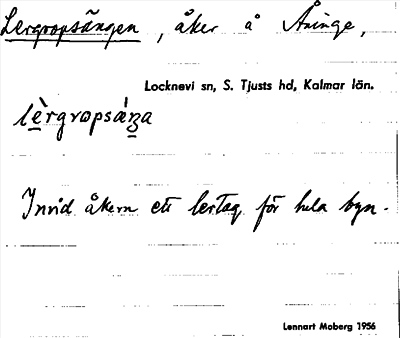 Lergropsängen, åker å Åninge,
Locknevi sn, S. Tjusts hd, Kalmar län.
lèrgropsáŋa
Invid åkern ett lertag för hela byn.
Lennart Moberg 1956